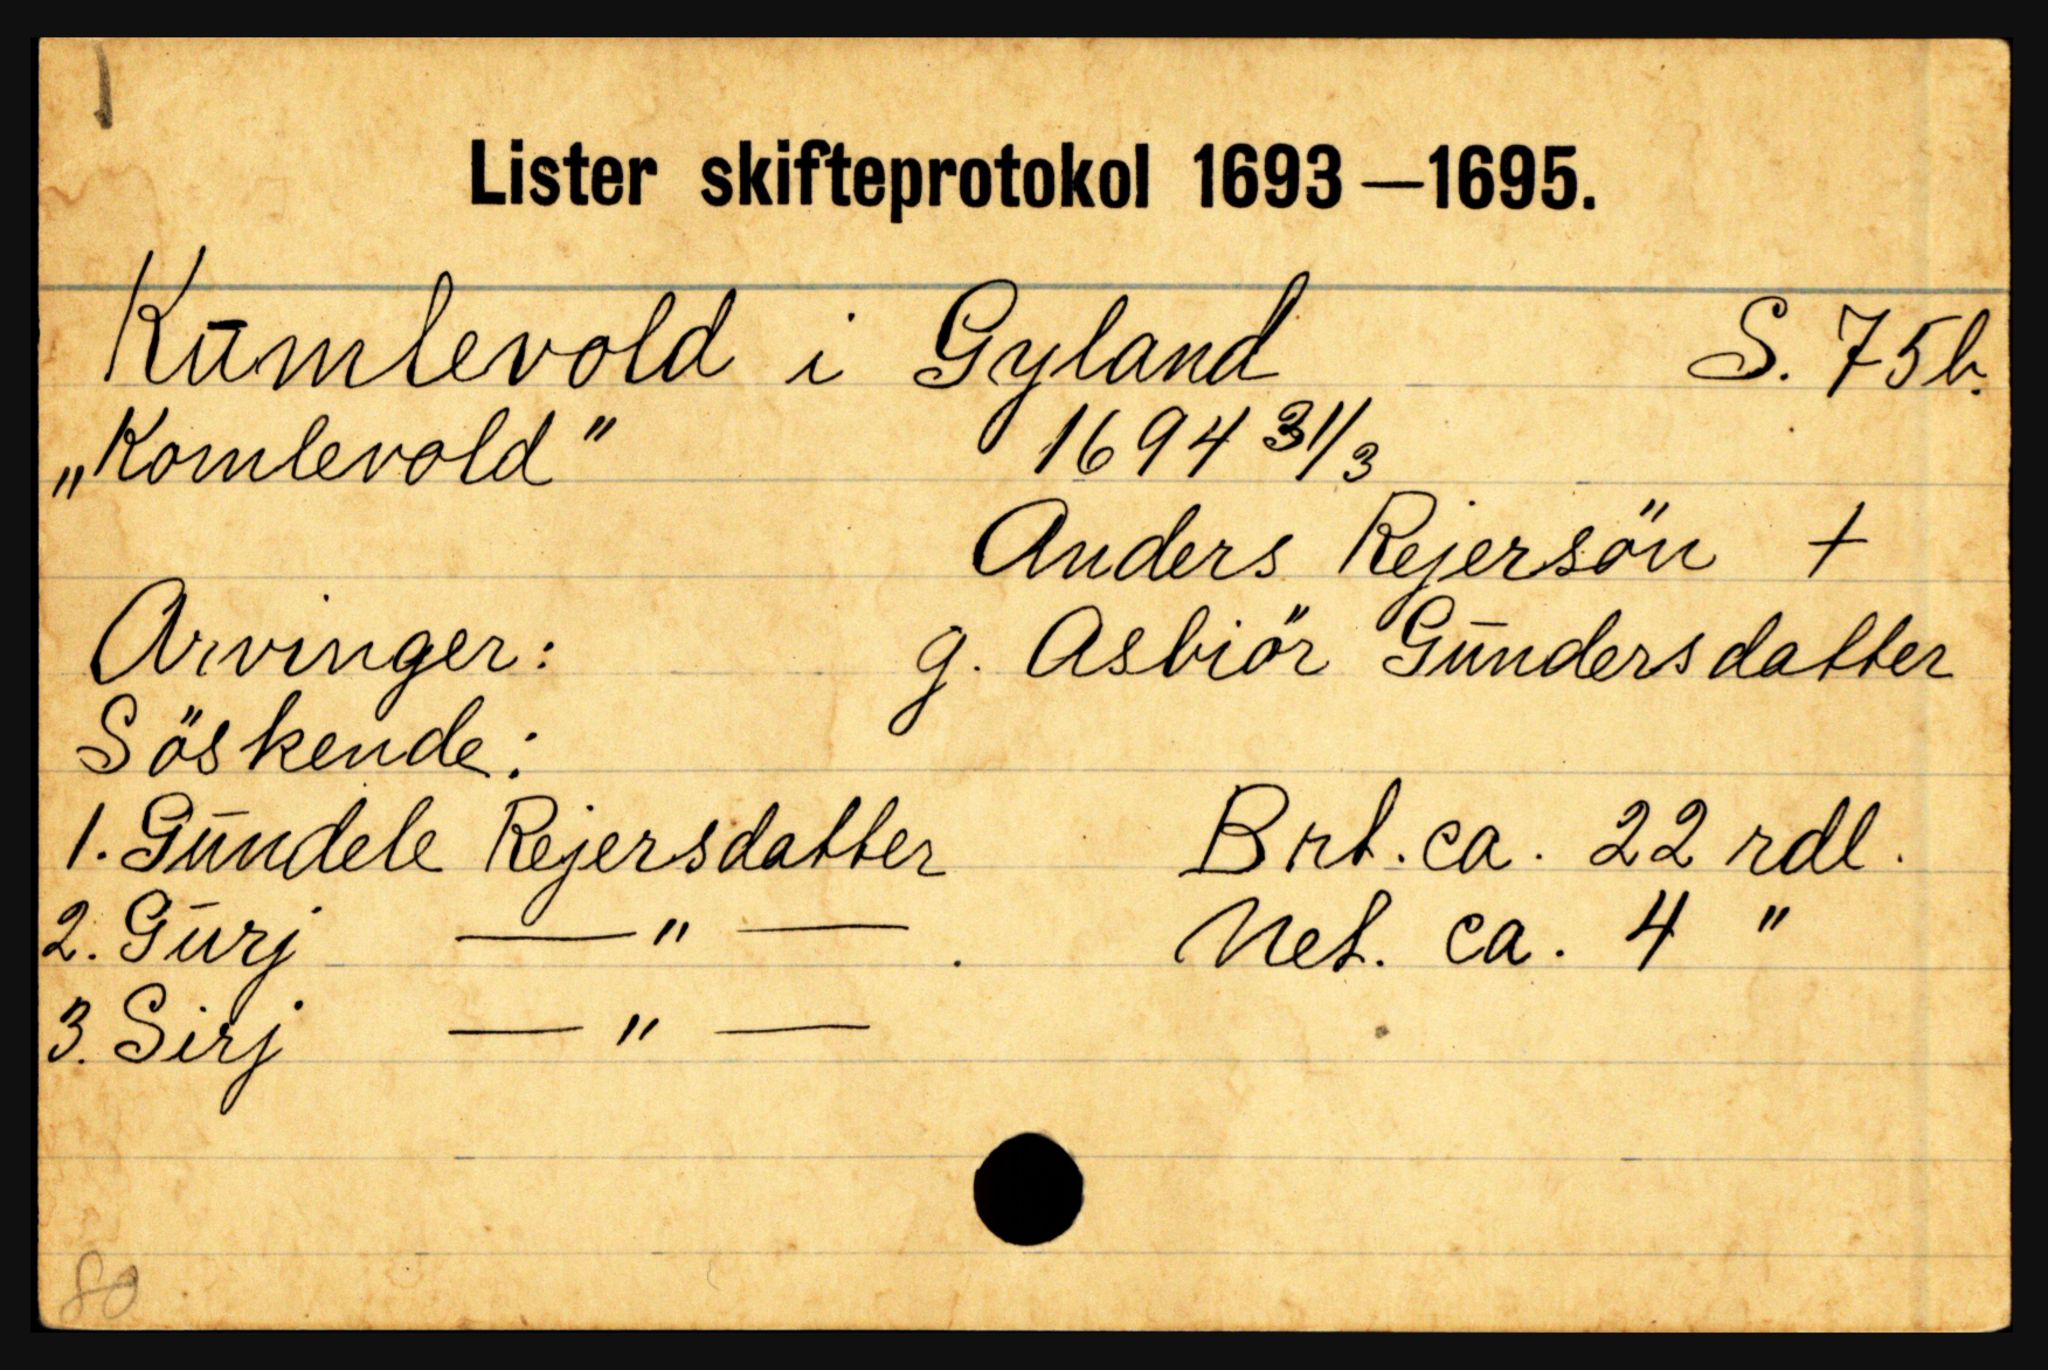 Lister skifteprotokol 1693—1695.
Kūmlevold i Gyland S. 75b.
„Komlevold" 1694 31/3
Anders Rejersön +
Arvinger: g. Asbiör Gūndersdatter
Söskende:
1. Gūndele Rejersdatter Brt. ca. 22 rdl.
2. Gūrj —"— . Net. ca. 4 "
3. Sirj —"—
80